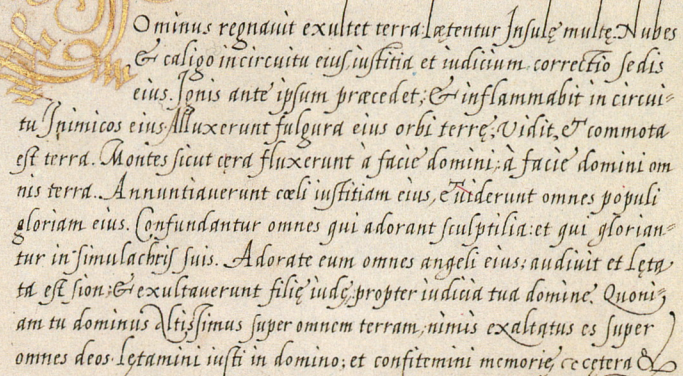 Ominus regnauit exultet terra: lætentur Insulę multę. Nubes
& caligo in circuitu eius iustitia et iudicium correctio sedis
eius. Ignis ante ipsum præcedet, & inflammabit in circui-
tu Inimicos eius. Alluxerunt fulgura eius orbi terrę. Vidit, & commota
est terra. Montes sicut cęra fluxerunt à facie domini; à facie domini om
nis terra.. Annuntiauerunt cœli iustitiam eius, & uiderunt omnes populi
gloriam eius. Confundantur omnes qui adorant sculptilia: et qui glorian-
tur in simulachris suis. Adorate eum omnes angeli eius; audiuit et lęta
ta est sion; & exultauerunt filię iudę, propter iudicia tua domine. Quoni-
am tu dominus Altissimus super omnem terram, nimis exaltatus es super
omnes deos. Lętamini iusti in domino; et confitemini memorię &c cętera